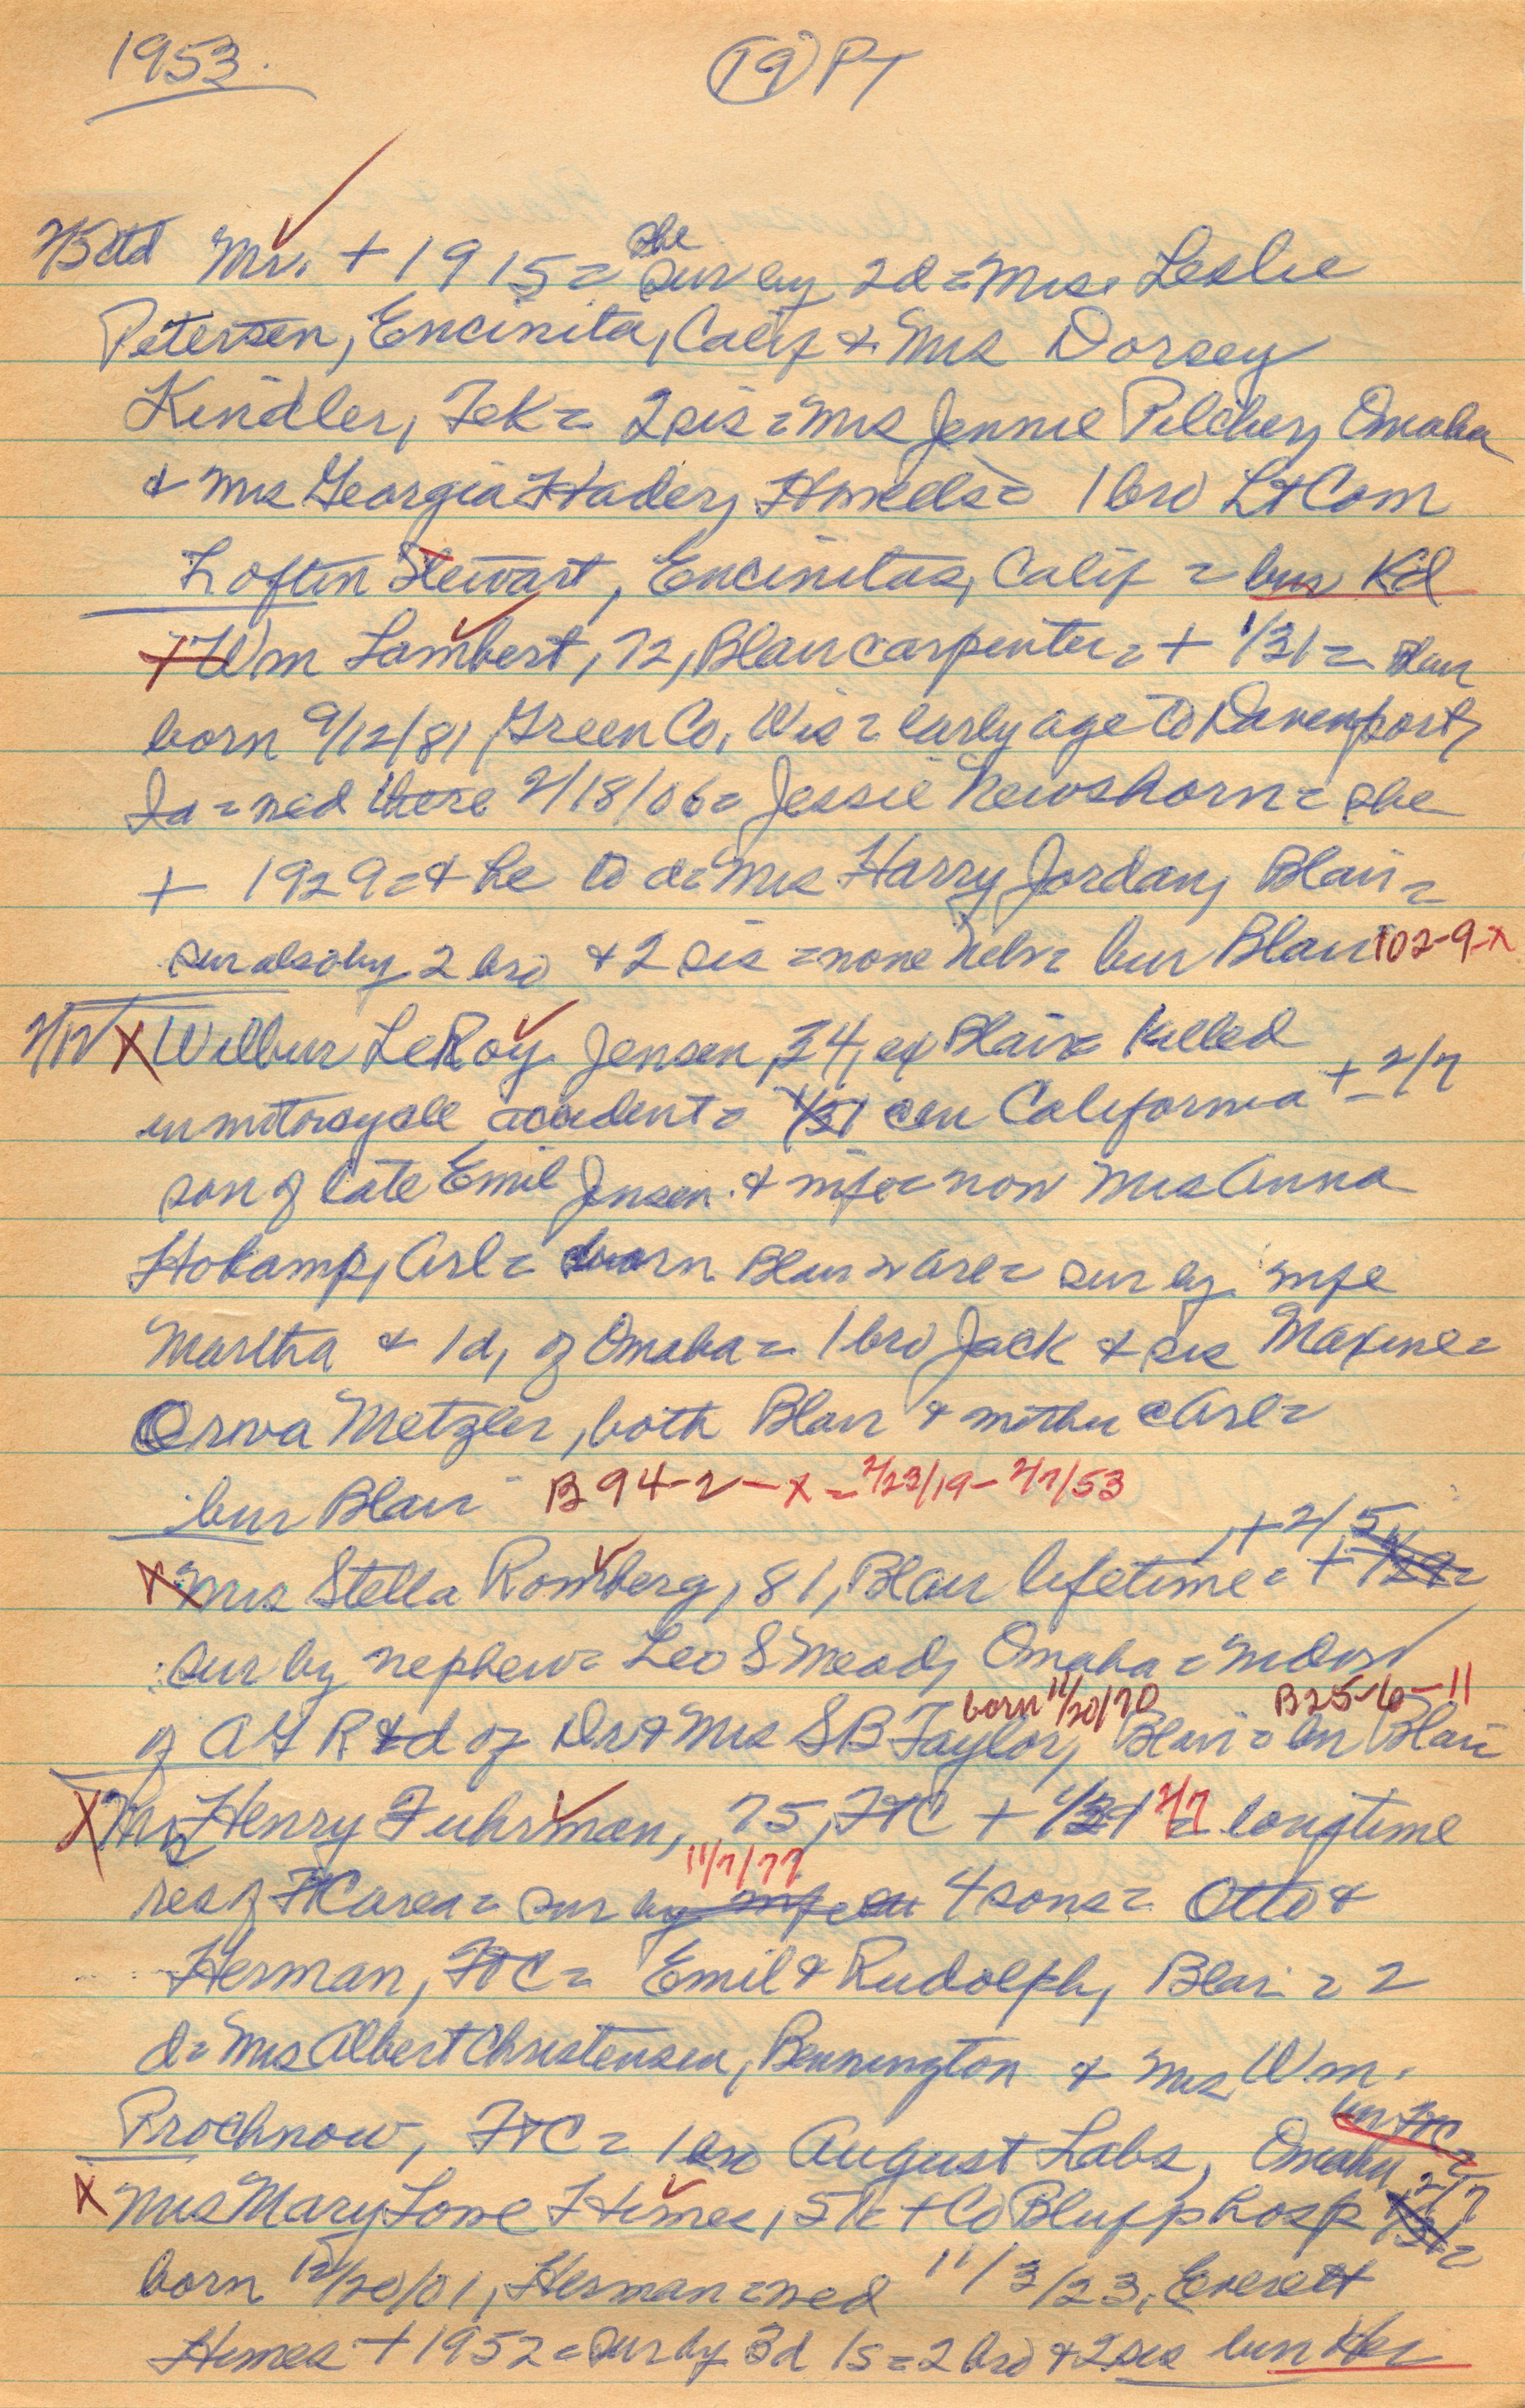 1953.
19 PT
2/5 ctd Mr. + 1915 = she sur by 2d = Mrs. Leslie
Petersen, Encinita, Calif & Mrs Dorsey
Kindler, Tek = 2 sis = Mrs Jennie Pilcher, Omaha
& Mrs Georgia Hader, = 1 bro Lt Com
Loftin Stewart, Encinitas, Calif = bur Kd
X Wm Lambert, 72, Blair carpenter = + 1/31 = Blair
born 9/12/81, Green Co, Wis = early age to Davenport,
Ia = med there 2/18/06 = Jessie Newshorn = she
+ 1929 = & he to d = Mrs Harry Jordan, Blair =
sur also by 2 bro & 2 sis = none Nebr = bur Blair 102-9-X
2/12 X Wilbur LeRoy Jensen, 34, ex Blair = killed
in motorcycle accident = 1/31 in California + = 2/7
son of late Emil Jensen & wife = now Mrs Anna
Hokamp, Arl = born Blair = Arl = sur by wife
Martha & 1d, of Omaha = 1 bro Jack & sis Maxine =
Orwa Metzler, both Blair & mother Arl =
bur Blair B 94-2-X = 2/23/19 - 2/7/53
+ 2/5
X Mrs Stella Romberg, 81, Blair lifetime = + 1/29 =
sur by nephew = Leo S Mead, Omaha = widow
born 11/20/70 B25-6-11
of A F R & d of Dr & Mrs S B Taylor, Blair = bur Blair
X Mrs Henry Fuhrman, 75, FtC + 1/31 2/7 = longtime
11/7/77
res of FtC area = sur by wife 4 sons = Otto &
Herman, FtC = Emil & Rudolph, Blair = 2
d = Mrs Albert Christensen, Bennington & Mrs Wm.
bur FtC =
Prochnow, FtC = 1 bro August Labs, Omaha
X Mrs Mary Lone Himes, 51 = + Co Bluff hosp 1/31 = 2/7
born 12/20/01, Herman = med 11/3/23, Everett
Himes + 1952 = sur by 3d 1s = 2 bro & 2 sis bur Her